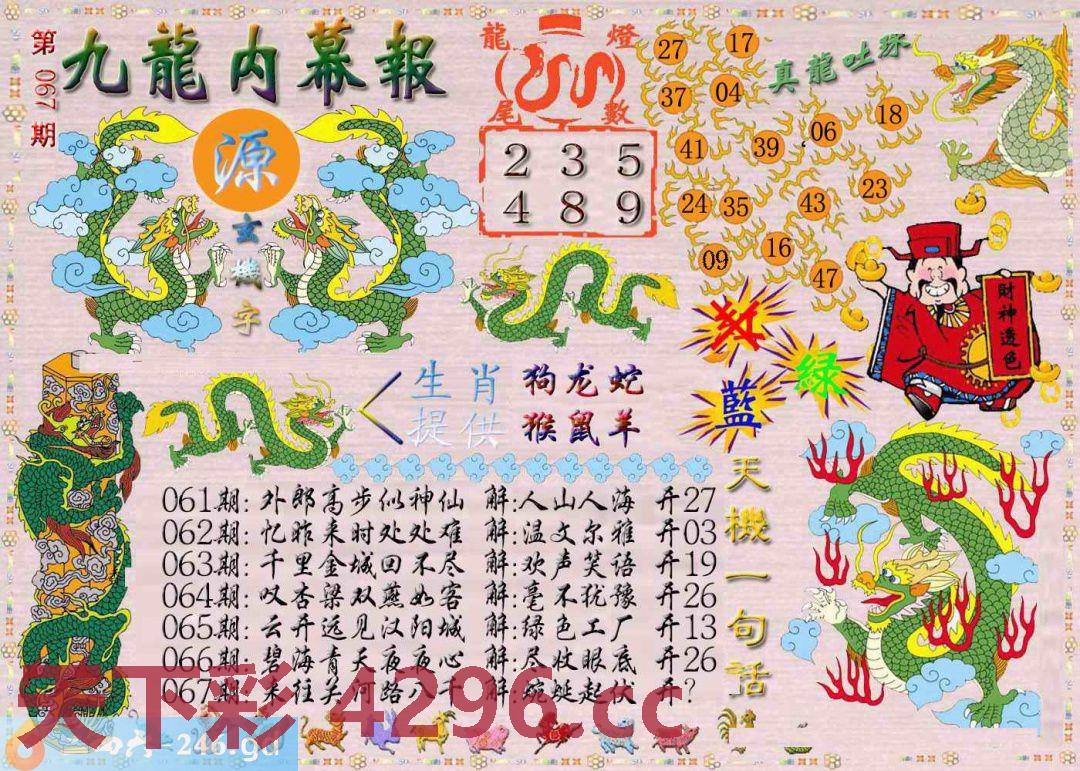 第067期
九龍内幕報
源
玄機字
龍燈
尾數
2 3 5
4 8 9
真龍吐珠
27 17
37 04
41 39 06 18
24 35 43 23
09 16 47
財神透色
红
绿
藍
生肖 狗龙蛇
提供 猴鼠羊
天機一句话
061期:外郎高步似神仙 解:人山人海 开27
062期:忆昨来时处处难 解:温文尔雅 开03
063期:千里金城回不尽 解:欢声笑语 开19
064期:叹杏梁双燕如客 解:毫不犹豫 开26
065期:云开远见汉阳城 解:绿色工厂 开13
066期:碧海青天夜夜心 解:尽收眼底 开26
067期:来往关河路八千 解:蜿蜒起伏 开?
天下彩 4296.cc
=246.gd